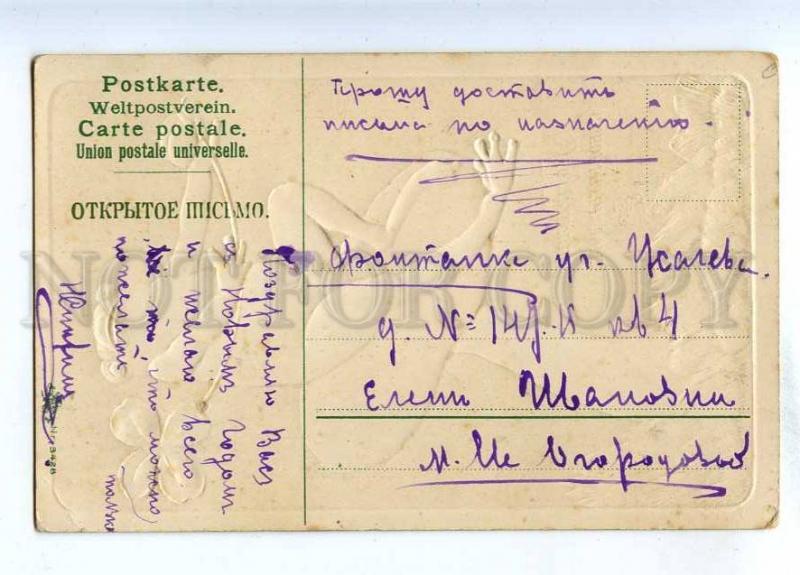 Postkarte.
Weltpostverein.
Carte postale.
Union postale universelle.
ОТКРЫТОЕ ПИСЬМО.
Прошу доставить
письма по назначенію.
Фонтанка уг. Усачева
д. № кв 4
Елени Ивановни
Поздравляю Васъ
съ Новымъ Годомъ
и желаю всего
что можно
пожелать
NOT FOR COPY